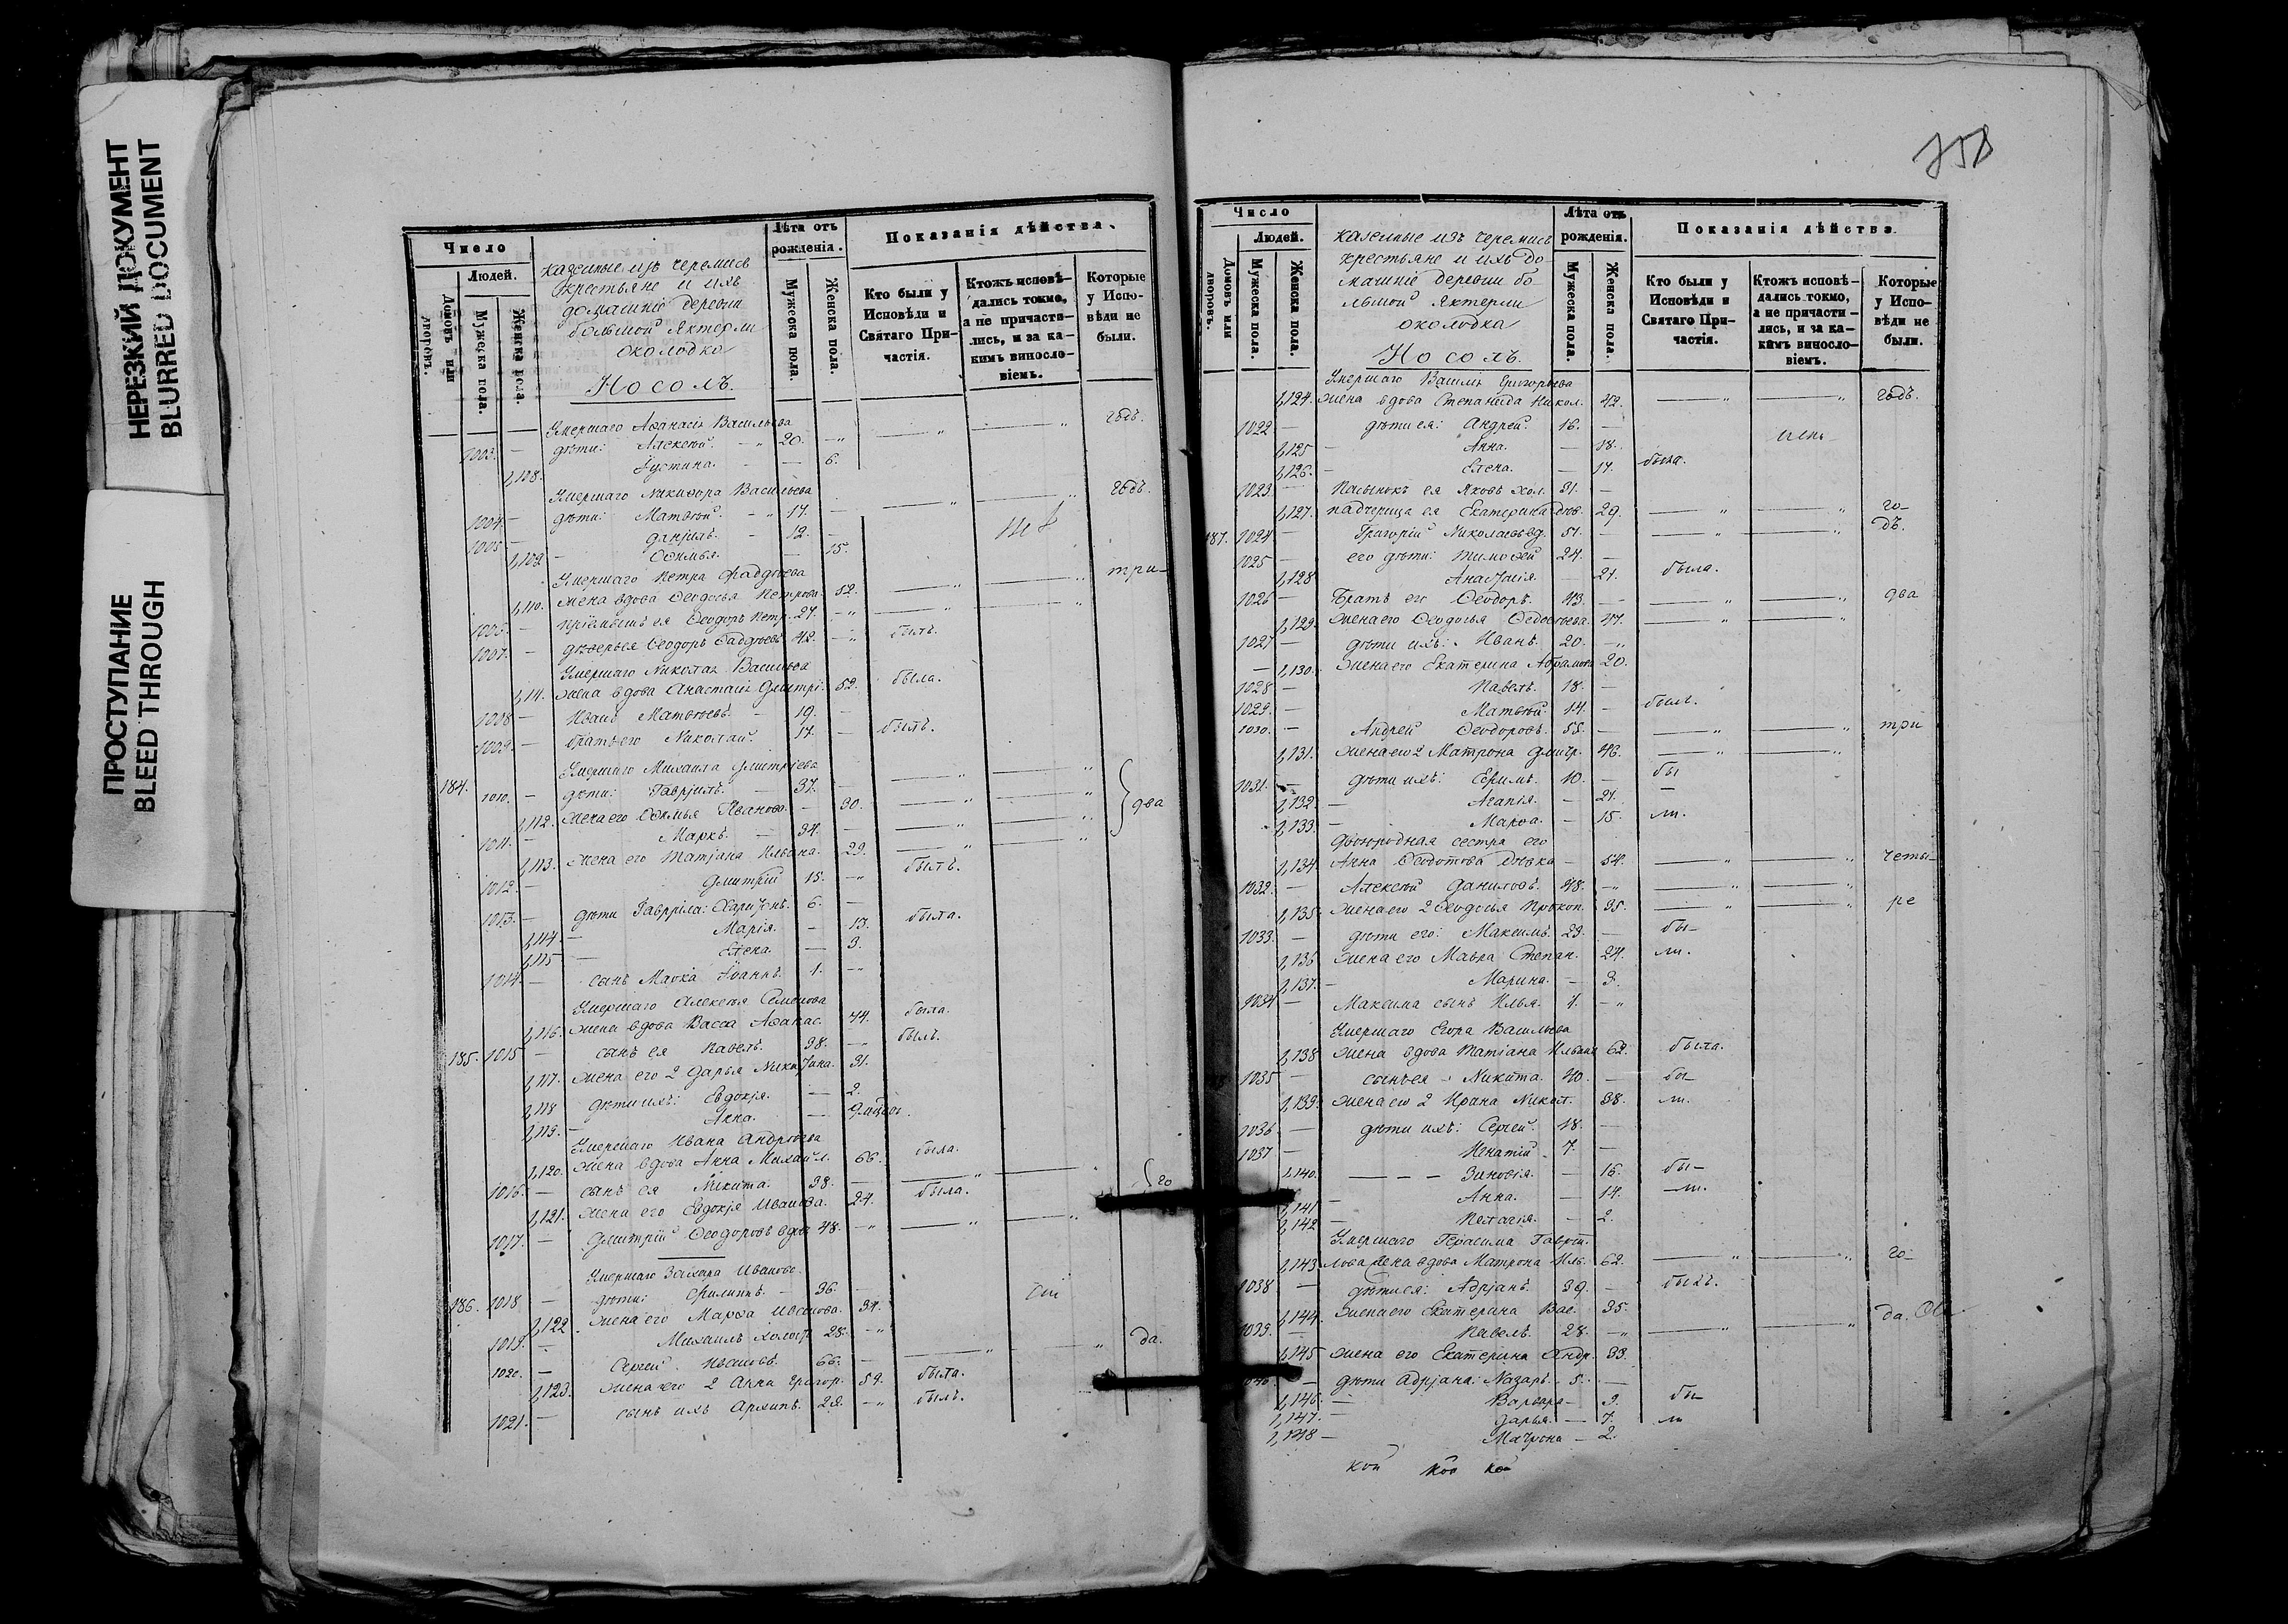 НЕРЕЗКИЙ ДОКУМЕНТ
BLURRED DOCUMENT
ПРОСТУПАНИЕ
BLEED THROUGH
Число
Людей.
Домовъ или дворовъ.
Мужеска пола.
Женска пола.
казенные изъ черемисъ
крестьяне и ихъ
домашніе деревни
большой Яктерли
околодка
Носолъ.
Лѣта отъ рожденія.
Мужеска пола.
Женска пола.
Показанія дѣйства.
Кто были у Исповѣди и Святаго Причастія.
Ктожъ исповѣдались токмо, а не причастились, и за какимъ винословіемъ.
Которые у Исповѣди не были.
Умершаго Аѳанасія Васильева годъ.
1003. — дѣти: Алексѣй. — 20. —
1,108. Іустина. — 6.
Умершаго Никифора Васильева годъ.
1004. — дѣти: Матвѣй. — 17. —
1005. — Даніилъ. — 12. —
1,109 — Ефимья. — 15.
Умершаго Петра Фаддѣева три
1,110. жена вдова Ѳеодосья Петрова. 52.
1006. — пріемышъ ея Ѳеодоръ Петр. 27. —
1007. — деверь ея Ѳеодоръ Фаддѣевъ 42. — былъ.
Умершаго Николая Васильева
жена вдова Анастасія Дмитрі. 52. была.
1008 — Иванъ Матвѣевъ. — 19. —
1009. — братъ его Николай. 17. — былъ.
Умершаго Михаила Дмитріева
184. 1010. — дѣти: Гавріилъ. — 37.
1,112. жена его Ефимья Иванова. — 30. два
1011. — Маркъ. — 34. —
1,113. жена его Татіана Ильина. 29.
1012. — Дмитрій 15. — былъ.
1013. — дѣти Гавріила: Харитонъ. 6. —
1,114 — Марія. — 13. была.
1,115 — Елена. — 3.
1014 — сынъ Марка Іоаннъ. 1. —
Умершаго Алексѣя Семенова
1,116. жена вдова Васса Аѳанас. 44. была.
185. 1015 — сынъ ея Павелъ. 38. — былъ.
1,117. жена его 2 Дарья Никитина. 31.
1,118 дѣти ихъ: Евдокія. — 2.
1,119. — Анна. —
Умершаго Ивана Андреева
1,120. жена вдова Анна Михайл. 66. была.
1016. — сынъ ея Никита. 38. — го
1,121. жена его Евдокія Иванова. 24. была.
1017. — Дмитрій Ѳеодоровъ вдов 48. —
Умершаго Захара Иванова.
186. 1018 — дѣти: Филиппъ. — 36. —
1,122 жена его Марѳа Иванова. 34.
1019. — Михаилъ холост. 28. — да.
1020. — Сергей Ивановъ. 66. —
1,123. жена его 2 Анна Григор. 59. была.
1021. — сынъ ихъ Архипъ. 22. — былъ.
758
Число
Людей.
Домовъ или дворовъ.
Мужеска пола.
Женска пола.
казенные изъ черемисъ
крестьяне и ихъ до-
машніе деревни бо-
льшой Яктерли
околодка
Носолъ.
Лѣта отъ рожденія.
Мужеска пола.
Женска пола.
Показанія дѣйства.
Кто были у Исповѣди и Святаго Причастія.
Ктожъ исповѣдались токмо, а не причастились, и за какимъ винословіемъ.
Которые у Исповѣди не были.
Умершаго Василія Григорьева
1,124. жена вдова Степанида Никол. 42. годъ.
1022 — дѣти ея: Андрей. 16. —
1,125 — Анна. — 18.
1,126. — Елена. — 17. была.
1023. — Пасынокъ ея Яковъ хол. 31. —
1,127. падчерица ея Екатерина дѣв. 29. го-
187. 1024 — Григорій Николаевъ вд. 51. — дъ.
1025 — его дѣти: Тимофей 24. —
1,128 Анастасія. — 21. была.
1026 — Братъ его Ѳеодоръ. 43. — два
1,129. жена его Ѳеодосья Федосѣева. 47.
1027 — дѣти ихъ: Иванъ. 20. —
— 1,130. жена его Екатерина Абрамова 20.
1028 — Павелъ. 18. —
1029. — Матвѣй. 14. — былъ.
1030. — Андрей Ѳеодоровъ. 55. — три
1,131. жена его 2 Матрона Дмитр. 46.
1031. — дѣти ихъ: Ефимъ. 10. — бы
1,132. — Агапія. — 21. —
1,133. — Марѳа. — 15. ли.
двоюродная сестра его
1,134 Анна Ѳеодотова дѣвка — 54. четы-
1032. — Алексѣй Даниловъ. 48. —
1,135. жена его 2 Ѳеодосья Прокоп. 35. ре
1033. — дѣти его: Максимъ. 23. — бы-
1,136 жена его Мавра Степан. 24. ли.
1,137. — Марина. — 3.
1034 — Максима сынъ Илья. 1. —
Умершаго Егора Васильева
1,138 жена вдова Татіана Ильина 62. была.
1035 — сынъ ея — Никита. 40. — бы-
1,139. жена его 2 Ирина Никол. 38. ли.
1036 — дѣти ихъ: Сергей. 18. —
1037 — Игнатій 7. —
1,140. — — — Зиновія. — 16. бы-
1,141 — Анна. — 14. ли.
1,142 — Пелагія. — 2.
Умершаго Герасима Гаврі.
1,143 лова жена вдова Матрона Иль. 62. го-
1038 — дѣти ея: Адріанъ. 39. — былъ.
1,144. жена его Екатерина Вас. 35. да.
1039. — Павелъ. 28. —
1,145 жена его Екатерина Андр. 33.
— дѣти Адріана: Назаръ. 5. —
1,146. — Варвара — 9. бы-
1,147. — Дарья. — 7. ли
1,148 — Матрона — 2.
кой кой кой